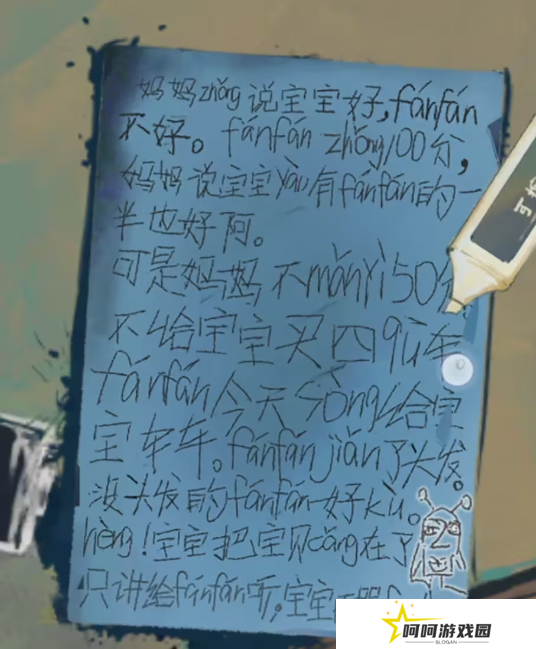 妈妈zhǒng说宝宝好,fánfán
不好。fánfán zhǒng100分,
妈妈说宝宝yào有fánfán的一
半也好阿。
可是妈妈不mǎnyì50分
不给宝宝买四qū车
fánfán今天sòng给宝
宝车车。fánfán jiǎn了头发。
没头发的fánfán好kù。
hèng!宝宝把宝贝cáng在了
只讲给fánfán听,宝宝
呵呵游戏园
SLOGAN